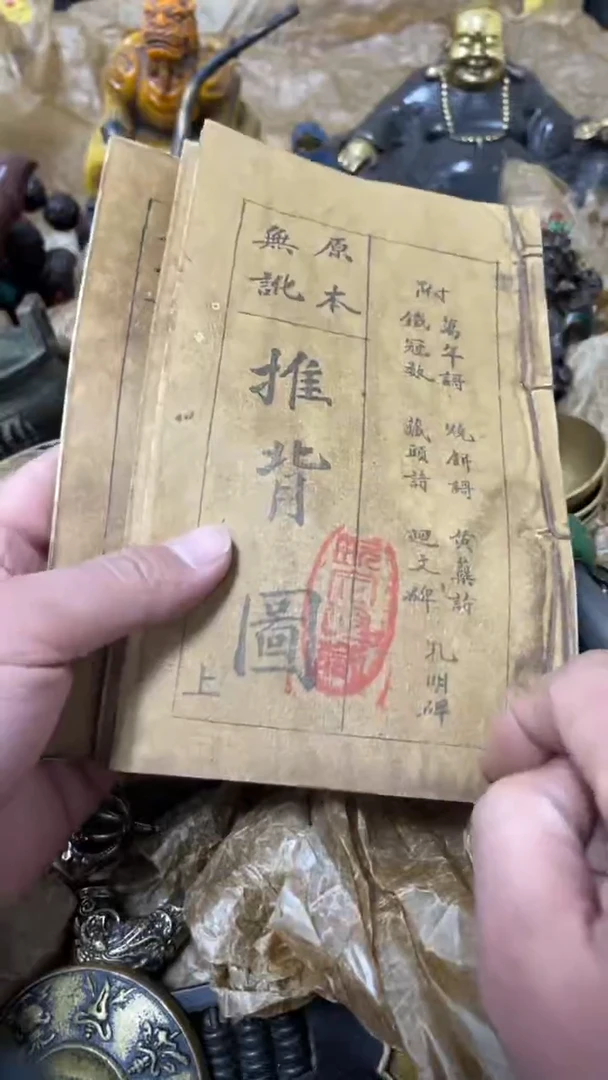 附
萬年謌 燒餅謌 黃蘗詩
鐵冠数 藏頭詩 廻文碑
孔明碑
原本
無訛
推背圖
上